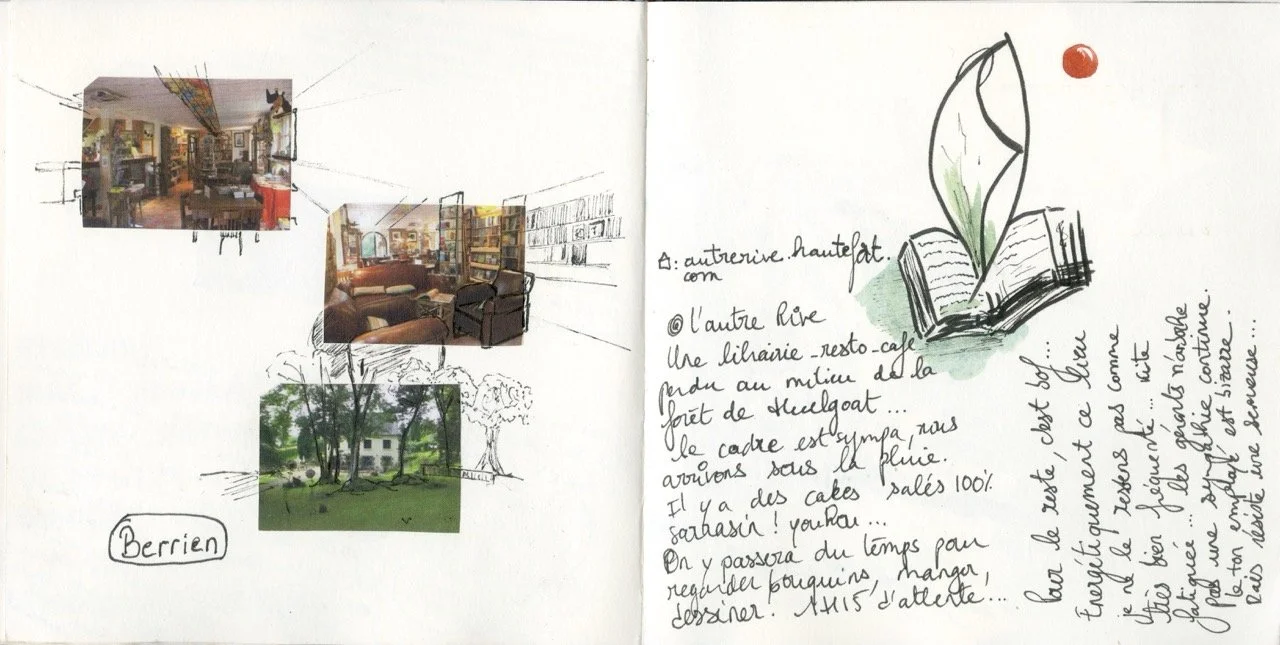 Berrien
: autrerive.hautefort.
com
@ l'autre Rive
Une librairie-resto-café
perdu au milieu de la
forêt de Huelgoat...
le cadre est sympa, nous
arrivons sous la pluie.
Il y a des cakes salés 100%
sarrasin ! youhou...
On y passera du temps pour
regarder bouquins, manger,
dessiner ! 1H15 d'attente...
Pour le reste, c'est bof...
Energétiquement ce lieu
je ne le ressens pas comme
très bien fréquenté... vite
fatiguée... les gérants n'ont
pas une sympathie continue.
le ton employé est bizarre.
Mais résiste une